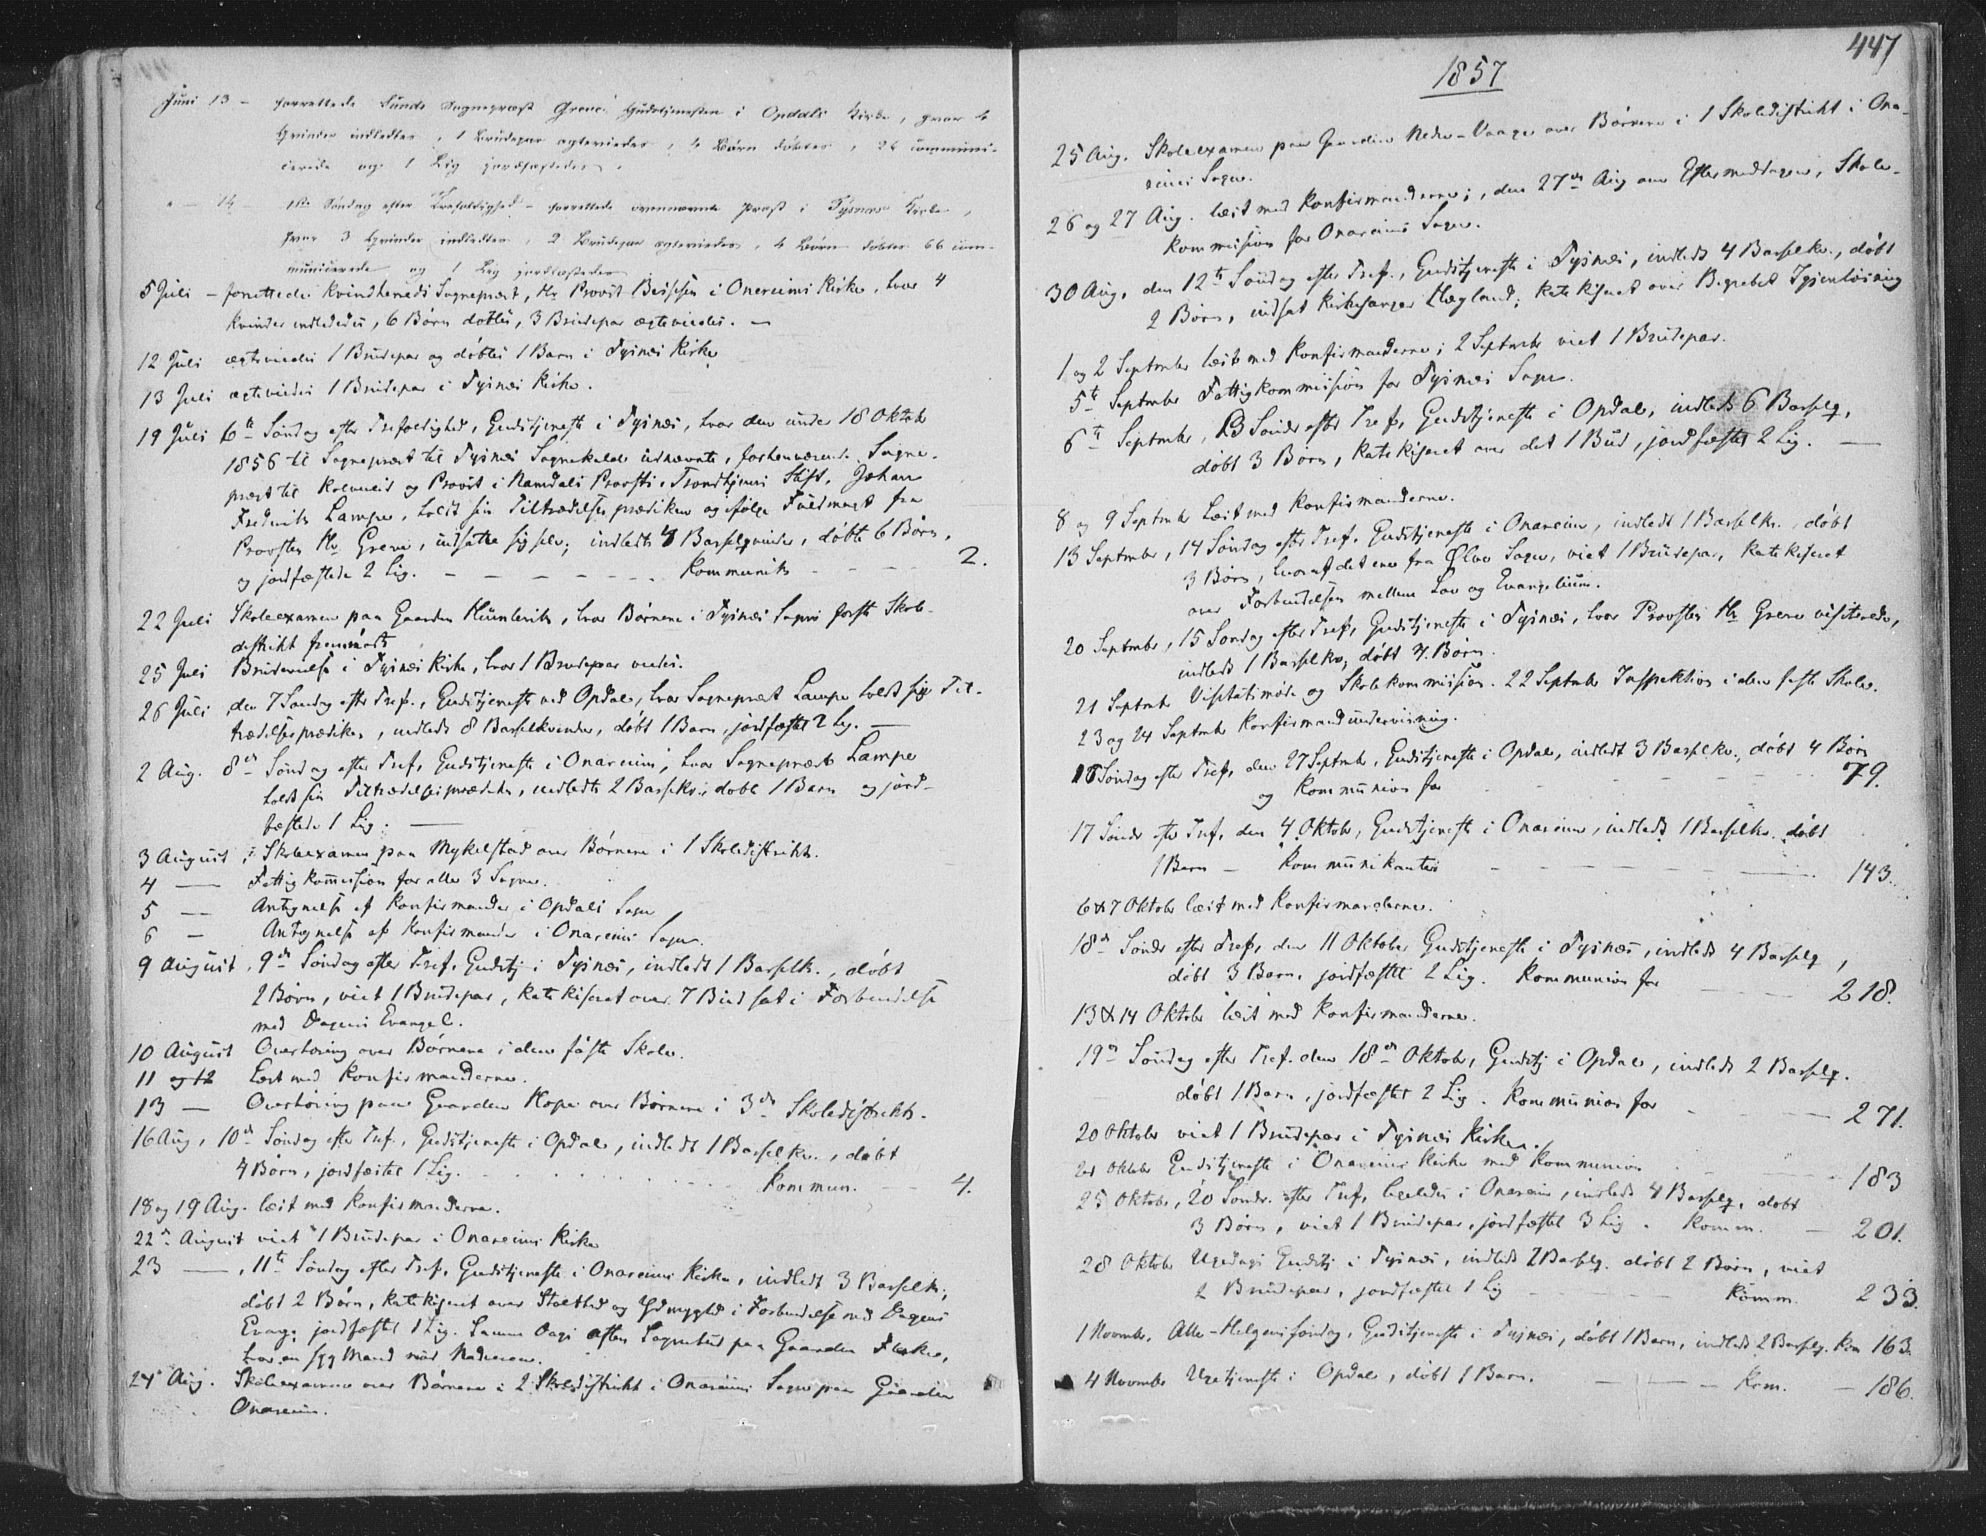 Juni 13 – forrettede Sunds Sognepræst Greve Gudstjenesten i Opdals Kirke, hvor 4
Qvinder indledtes, 1 Brudepar ægteviedes, 4 Børn døbtes, 26 communi-
cerede og 1 Liig jordfæstedes.
" – 14 – 1ste Søndag efter Trefoldighed – forrettede ovennævnte Præst i Tysnæs Kirke,
hvor 3 Qvinder indledtes, 2 Brudepar ægteviedes, 4 Børn døbtes 66 com-
municerede og 1 Liig jordfæstedes
5 Juli – forrettede Kvindherreds Sognepræst, Hr Provst i Onereims Kirke, hvor 4
Kvinder indlededes, 6 Børn døbtes, 3 Brudepar ægteviedes. –
12 Juli ægteviedes 1 Brudepar og døbtes 1 Barn i Tysnæs Kirke
13 Juli ægteviedes 1 Brudepar i Tysnæs Kirke.
19 Juli 6te Søndag efter Trefoldighed, Gudstjeneste i Tysnæs, hvor den under 18 Oktob
1856 til Sognepræst til Tysnæs Sognekald udnævnte, forhenværende Sogne-
præst til Kolvereid og Provst i Namdals Provsti, Trondhjems Stift, Johan
Frederik Lampe, holdt sin Tiltrædelsesprædiken og ifølge Fuldmagt fra
Provsten Hr Greve, indsatte sig selv; indledte 8 Barselqvinder, døbte 6 Børn,
og jordfæstede 2 Lig. – – – – – – Kommunik – – – – 2.
22 Juli Skoleexamen paa Gaarden, hvor Børnene i Tysnæs Sogns første Skole-
distrikt fremmødte
25 Juli Brudevielse i Tysnæs Kirke, hvor 1 Brudepar viedes.
26 Juli den 7 Søndag efter Tref., Gudstjeneste ved Opdal, hvor Sognepræst Lampe holdt sin Til-
trædelsesprædiken, indledte 8 Barselkvinder, døbt 1 Barn, jordfæstet 2 Lig. –
2 Aug. 8de Søndag efter Tref, Gudstjeneste i Onareim, hvor Sognepræst Lampe
holdt sin Tiltrædelsesprædiken, indledte 2 Barselkv. døbt 1 Barn og jord-
fæstede 1 Lig. –
3 August, Skoleexamen paa Mykelstad over Børnene i 1 Skoledistrikt.
4 — Fattigkommission for alle 3 Sogne.
5 — Antegnelse af Konfirmander i Opdals Sogn
6 – Antegnelse af Konfirmander i Onareims Sogn.
9 August, 9de Søndag efter Tref. Gudstj i Tysnæs, indledt 1 Barselk., døbt
2 Børn, viet 1 Brudepar, katekiseret over 7 Bud sat i Forbindelse
med Dagens Evangel.
10 August Overhøring over Børnene i den faste Skole.
11 og 12 Læst med Konfirmanderne.
13 — Overhøring paa Gaarden Hope over Børnene i 3de Skoledistrikt.
16 Aug, 10de Søndag efter Tref, Gudstjeneste i Opdal, indledt 1 Barselkv., døbt
4 Børn, jordfæstet 1 Lig. Kommun. – 4.
18 og 19 Aug. læst med Konfirmanderne.
22de August viet 1 Brudepar i Onareims Kirke
23 —, 11te Søndag efter Tref, Gudstjeneste i Onareims Kirke, indledt 3 Barselk.,
døbt 2 Børn, katekiseret over Stolthed og Ydmyghed i Forbindelse med Dagens
Evang. jordfæstet 1 Lig. Samme Dags Aften Sognebud paa Gaarden,
hvor en syg Mand nød Nadveren.
24 Aug. Skoleexamen over Børnene i 2 Skoledistrikt i Onareims Sogn paa Gaarden
Onareim.
447
1857
25 Aug. Skoleexamen paa Gaarden Nedre-Vaage over Børnene i 1 Skoledistrikt i Ona-
reims Sogn.
26 og 27 Aug. læst med Konfirmanderne; den 27de Aug om Eftermiddagen, Skole-
kommission for Onareims Sogn.
30 Aug. den 12te Søndag efter Tref., Gudstjeneste i Tysnæs, indledt 4 Barselkv., døbt
2 Børn, indsat Kirkesanger Hægland; katekiseret over Begrebet Igjenløsning
1 og 2 September læst med Konfirmanderne; 2 September viet 1 Brudepar.
5te September Fattigkommission for Tysnæs Sogn.
6te September, 13 Sønd efter Tref, Gudstjeneste i Opdal, indledt 6 Barselq,
døbt 3 Børn, katekiseret over det 1 Bud, jordfæstet 2 Lig. —
8 og 9 September Læst med Konfirmanderne.
13 September, 14 Søndag efter Tref. Gudstjeneste i Onareim, indledt 1 Barselkv., døbt
3 Børn, hvoraf det ene fra Ølve Sogn, viet 1 Brudepar, katekiseret
over Forbindelsen mellem Lov og Evangelium.
20 September, 15 Søndag efter Tref, Gudstjeneste i Tysnæs, hvor Provsten Hr Greve visiterede,
indledt 1 Barselkv, døbt 4 Børn.
21 September Visitatsmøde og Skolekommission. 22 September Inspektion i den faste Skole.
23 og 24 September Konfirmandundervisning.
16 Søndag efter Tref, den 27 September, Gudstjeneste i Opdal, indledt 3 Barselkv., døbt 4 Børn
og Kommunion for – – – – – 79.
17 Sønd efter Tref, den 4 Oktober, Gudstjeneste i Onareim, indledt 1 Barselkv. døbt
1 Barn – Kommunikanter – – – – – 143.
6 & 7 Oktober læst med Konfirmanderne.
18de Sønd efter Tref, den 11 Oktober Gudstjeneste i Tysnæs, indledt 4 Barselq,
døbt 3 Børn, jordfæstet 2 Lig. Kommunion for – – – 218.
13 & 14 Oktober læst med Konfirmanderne.
19de Søndag efter Tref. den 18de Oktober, Gudstj i Opdal, indledt 2 Barselq.
døbt 1 Barn, jordfæstet 2 Lig. Kommunion for – – – 271.
20 Oktober viet 1 Brudepar i Tysnæs Kirke.
Oktober Gudstjeneste i Onareims Kirke med Kommunion – – – 183
25 Oktober, 20 Søndr. efter Tref, i Onareim, indledt 4 Barselq, døbt
3 Børn, viet 1 Brudepar, jordfæstet 3 Lig. Komm. – 201.
28 Oktober Ugedags Gudstj i Tysnæs, indledt 2 Barselq. døbt 2 Børn, viet
2 Brudepar, jordfæstet 1 Lig – – – – Komm. 233.
1 November. Alle-Helgens Søndag, Gudstjeneste i Tysnæs, døbt 1 Barn, indledt 2 Barselq. Kom 163.
4 November Ugetjeneste i Opdal, døbt 1 Barn. – – – Kom. – 186.